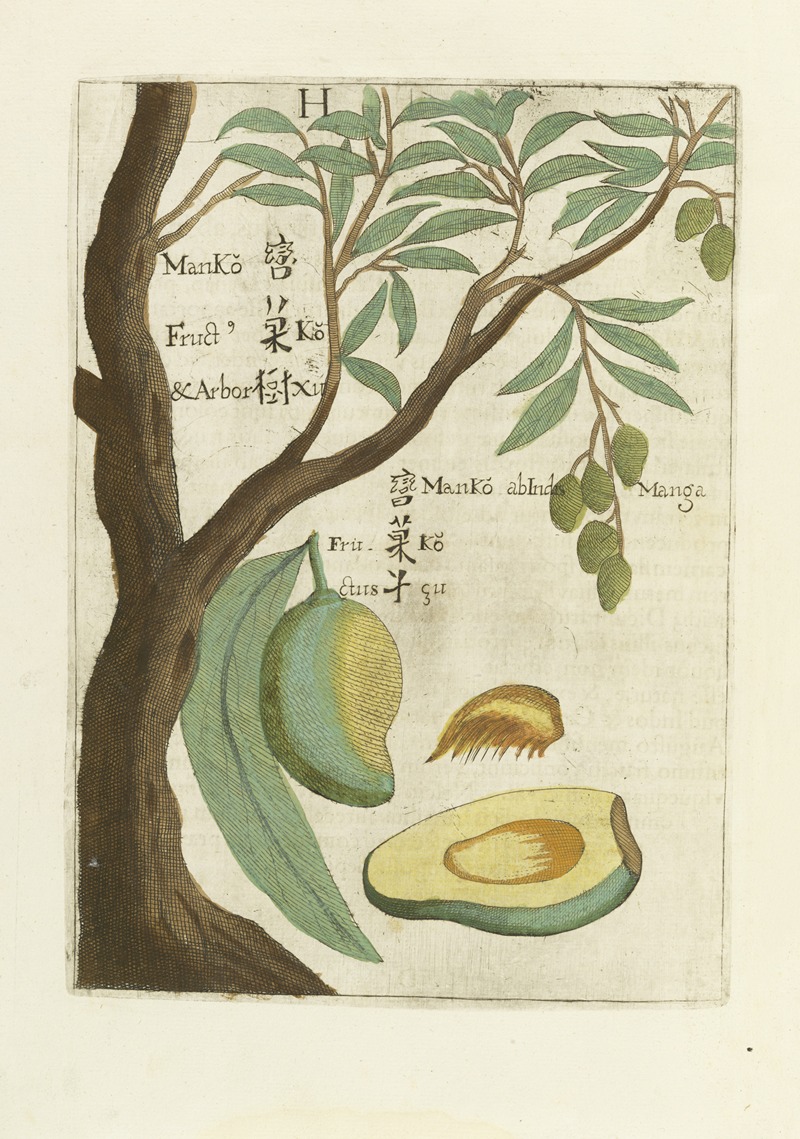 H
ManKŏ
Fruct ꝰ 菓 Kŏ
&Arbor 樹 xu
ManKŏ abIndis Manga
Fru- 菓 Kŏ
ctus çu